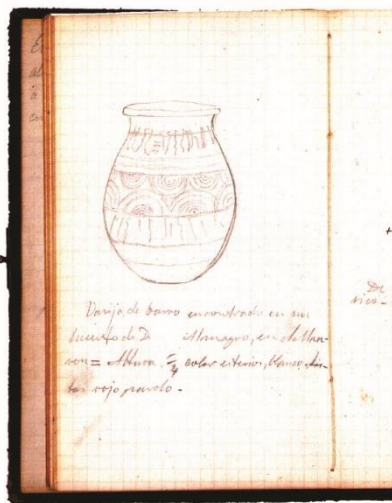 Vasija de barro encontrada en un
huerto de D Almagro, en el
= Altura = color exterior, blanco,
rojo pardo -
De
rico -